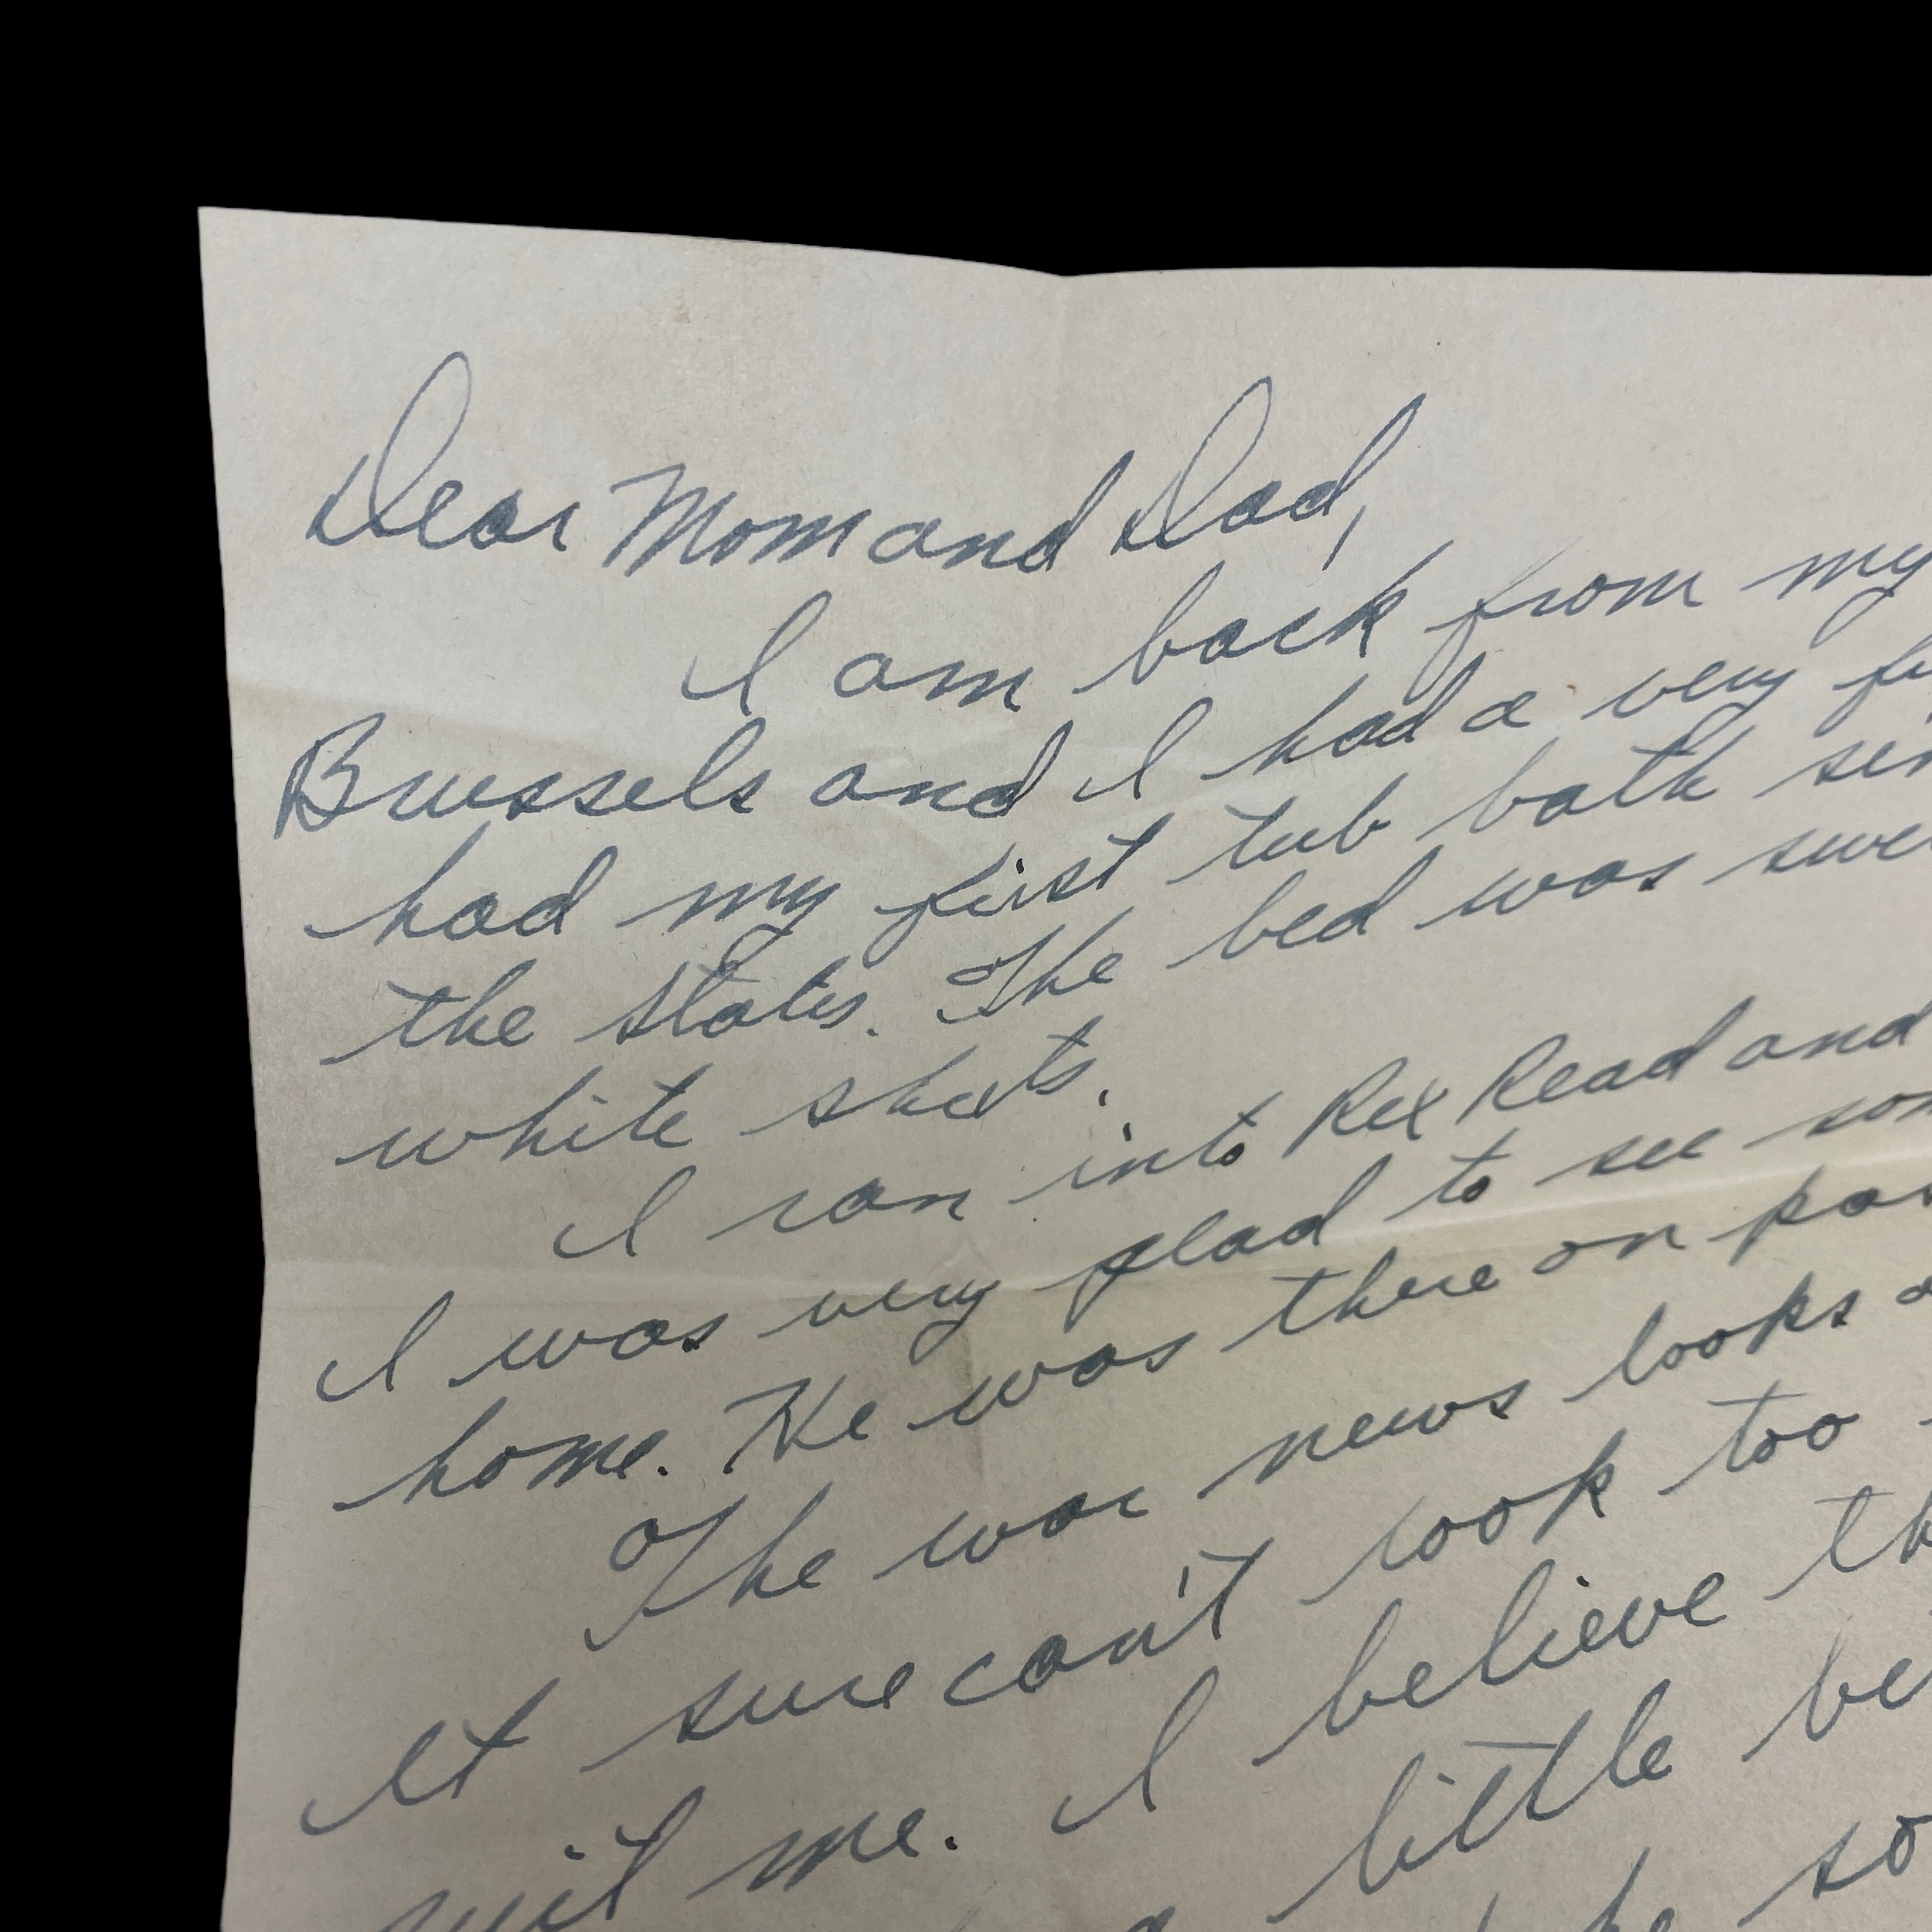 Dear Mom and Dad,
I am back from my
Brussels and I had a very
had my first tub bath
the States. The bed was
white sheets.
I ran into Rex Read and
I was very glad to see
home. He was there on
The war news looks
It sure can't look too
me. I believe
little
so